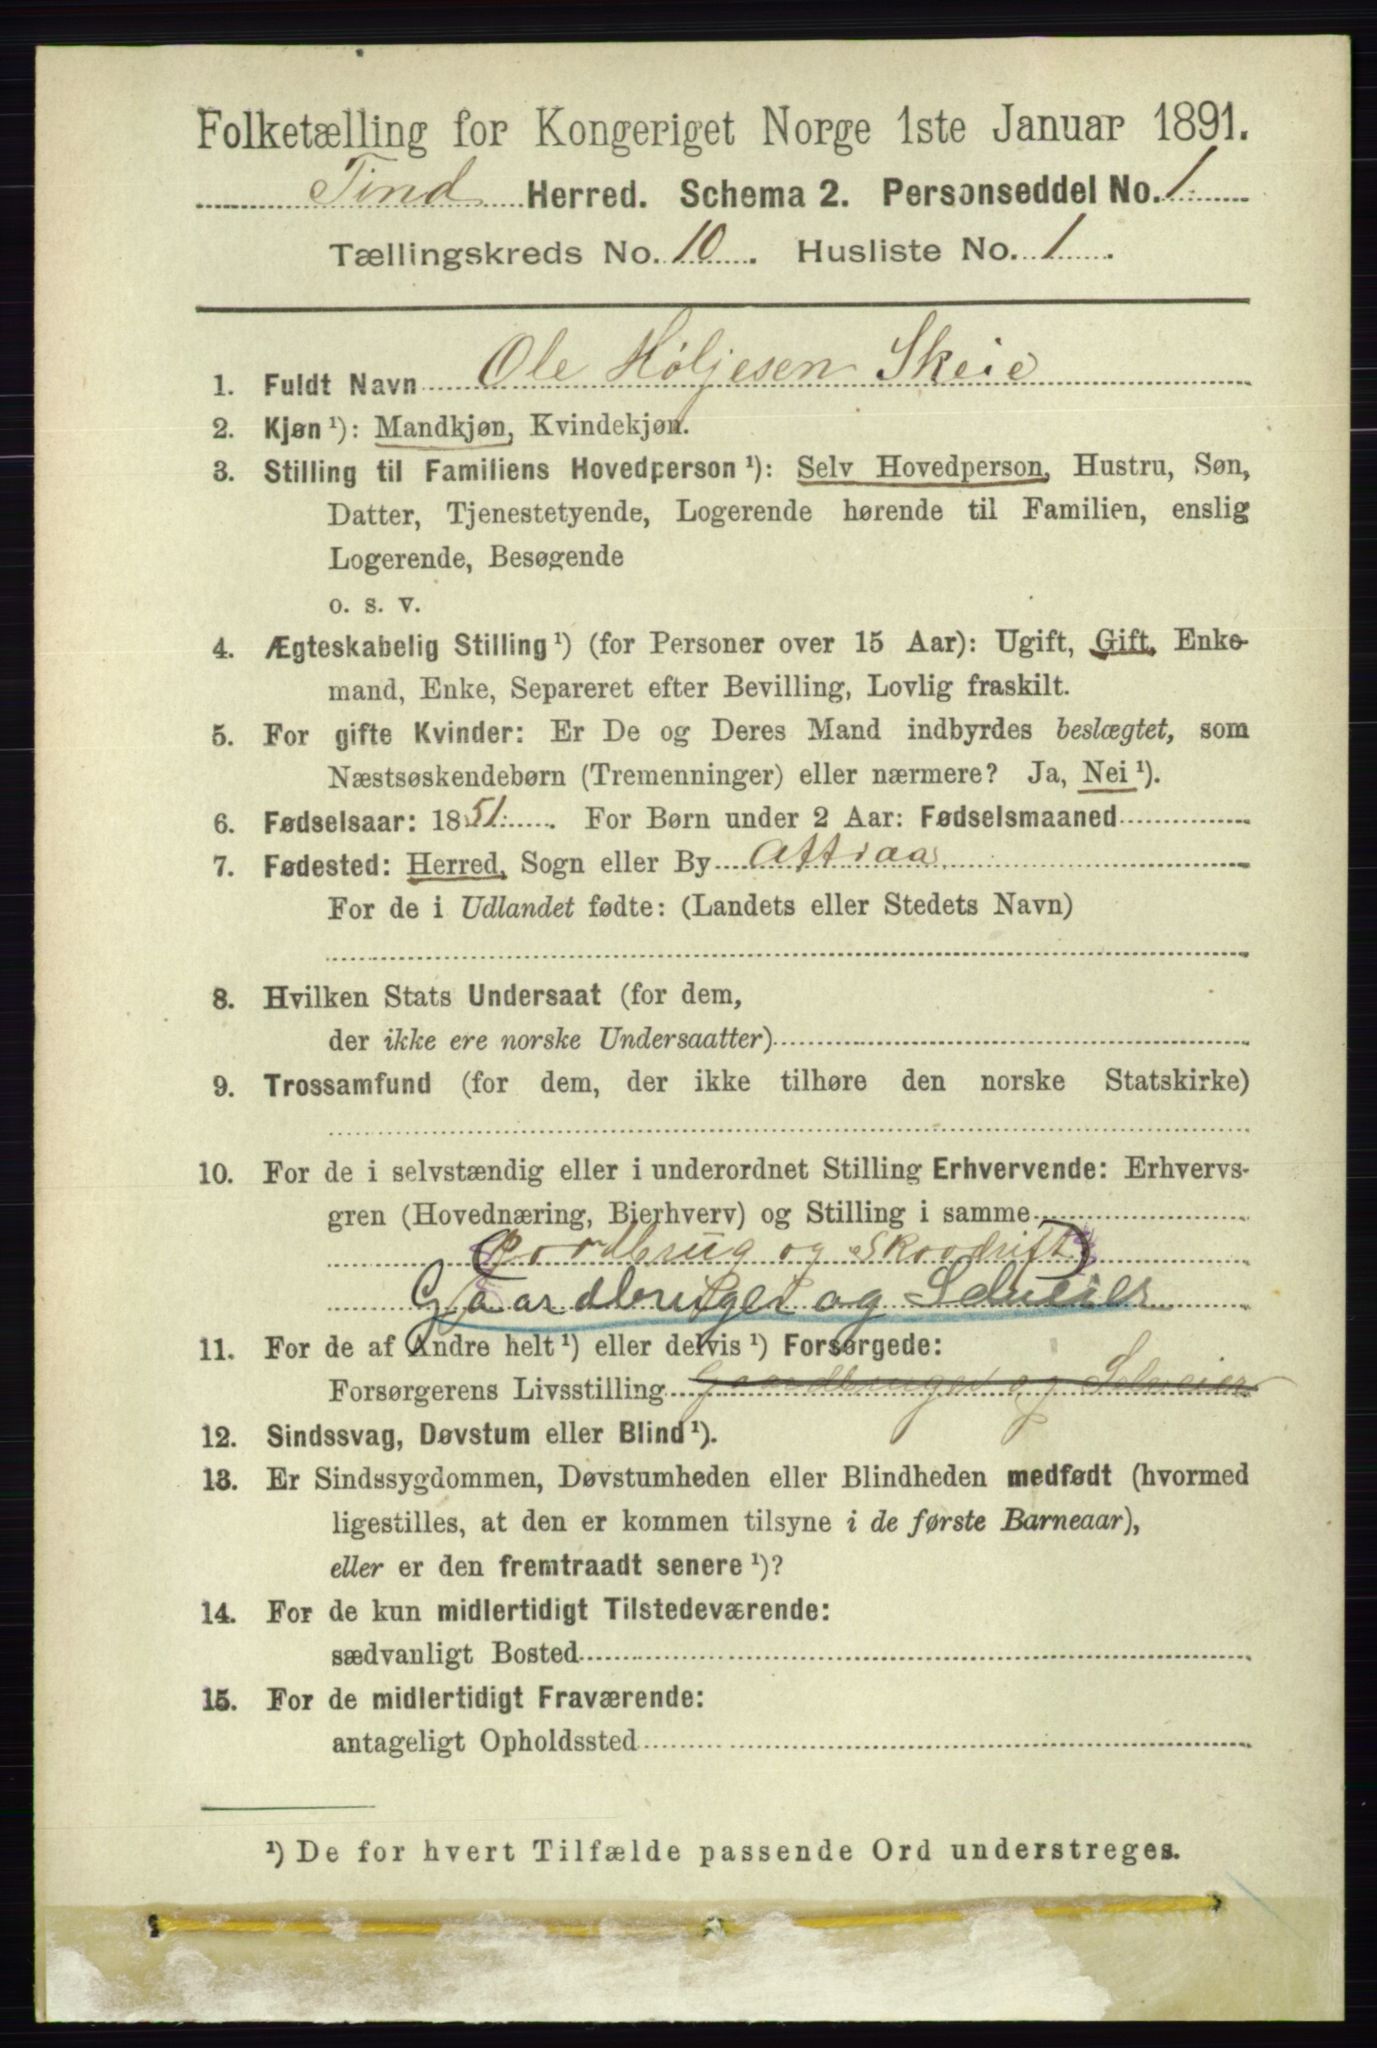 Folketælling for Kongeriget Norge 1ste Januar 1891.
Tind Herred. Schema 2. Personseddel No. 1
Tællingskreds No. 10. Husliste No. 1.
1. Fuldt Navn Ole Høljesen Skeie
2. Kjøn ¹): Mandkjøn, Kvindekjøn.
3. Stilling til Familiens Hovedperson ¹): Selv Hovedperson, Hustru, Søn,
Datter, Tjenestetyende, Logerende hørende til Familien, enslig
Logerende, Besøgende
o. s. v.
4. Ægteskabelig Stilling ¹) (for Personer over 15 Aar): Ugift, Gift, Enke-
mand, Enke, Separeret efter Bevilling, Lovlig fraskilt.
5. For gifte Kvinder: Er De og Deres Mand indbyrdes beslægtet, som
Næstsøskendebørn (Tremenninger) eller nærmere? Ja, Nei ¹).
6. Fødselsaar: 1851. For Børn under 2 Aar: Fødselsmaaned
7. Fødested: Herred, Sogn eller By Attraa
For de i Udlandet fødte: (Landets eller Stedets Navn)
8. Hvilken Stats Undersaat (for dem,
der ikke ere norske Undersaatter)
9. Trossamfund (for dem, der ikke tilhøre den norske Statskirke)
10. For de i selvstændig eller i underordnet Stilling Erhvervende: Erhvervs-
gren (Hovednæring, Bierhverv) og Stilling i samme
og
Gaardbruger og Selveier
11. For de af Andre helt ¹) eller delvis ¹) Forsørgede:
Forsørgerens Livsstilling Gaardbruger og Selveier
12. Sindssvag, Døvstum eller Blind ¹).
13. Er Sindssygdommen, Døvstumheden eller Blindheden medfødt (hvormed
ligestilles, at den er kommen tilsyne i de første Barneaar),
eller er den fremtraadt senere ¹)?
14. For de kun midlertidigt Tilstedeværende:
sædvanligt Bosted
15. For de midlertidigt Fraværende:
antageligt Opholdssted
¹) De for hvert Tilfælde passende Ord understreges.